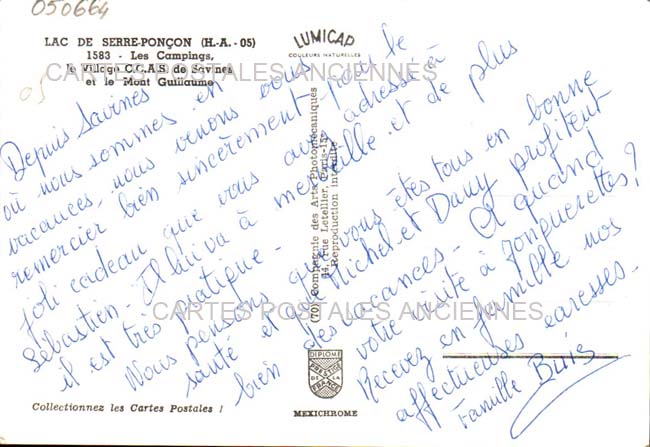 050664
LAC DE SERRE-PONÇON (H.-A. - 05)
1583 - Les Campings,
le Village C.C.A.S. de Savines
et le Mont Guillaume
LUMICAP
COULEURS NATURELLES
CARTES POSTALES ANCIENNES
05
Depuis Savines
où nous sommes en
vacances, nous venons vous
remercier bien sincèrement pour le
joli cadeau que vous avez adressé à
Sébastien. Il lui va à merveille et de plus
il est très pratique.
Nous pensons que vous êtes tous en bonne
santé et que Michel et Dany profitent
bien des vacances. Et quand
votre visite à Jonquerettes?
Recevez en famille nos
affectueuses caresses.
Famille
(70) Compagnie des Arts Photomécaniques
44, rue Letellier, Paris-15e
Reproduction interdite
CARTES POSTALES ANCIENNES
DIPLOME
PRESTIGE
DE LA
FRANCE
MEXICHROME
Collectionnez les Cartes Postales !